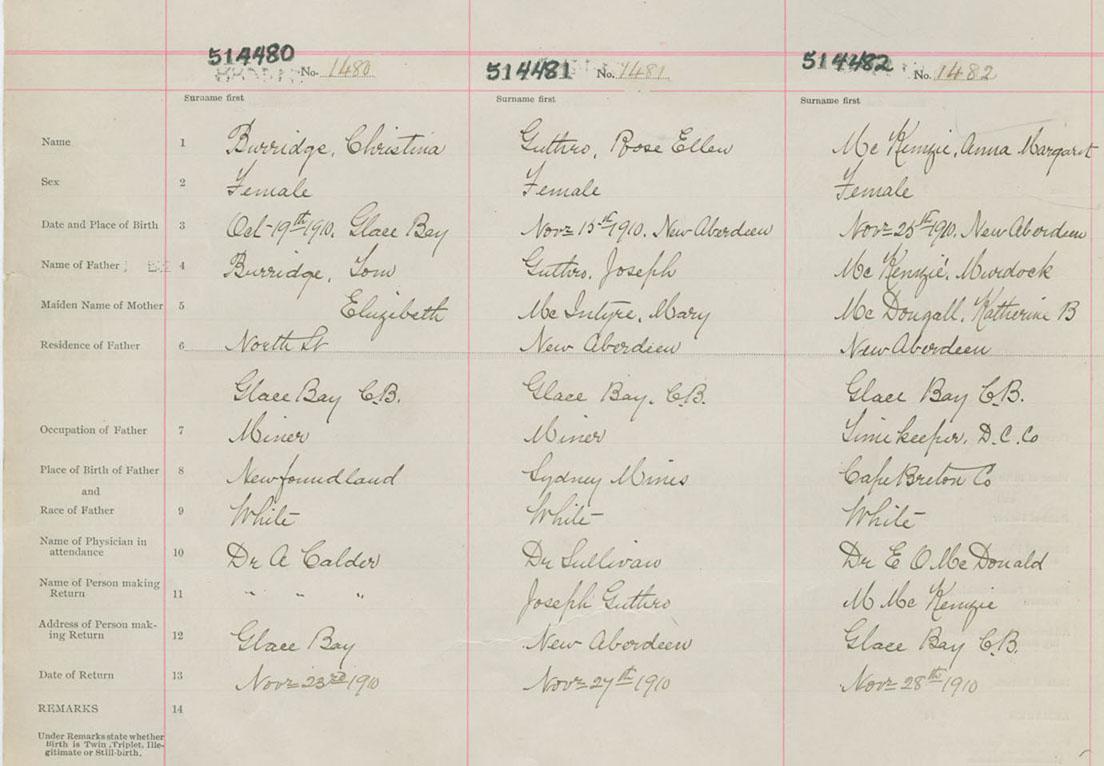 514480 No. 1480 514481 No. 1481 514482 No. 1482
Surname first Surname first Surname first
Name 1 Burridge, Christina Guthro, Rose Ellen Mc Kenzie, Anna Margaret
Sex 2 Female Female Female
Date and Place of Birth 3 Oct 19th 1910. Glace Bay Novr 15th 1910. New Aberdeen Novr 25th 1910. New Aberdeen
Name of Father 4 Burridge, Tom Guthro, Joseph Mc Kenzie, Murdock
Maiden Name of Mother 5 Elizibeth Mc Intyre, Mary Mc Dougall, Katherine B
Residence of Father 6 North St New Aberdeen New Aberdeen
Glace Bay C.B. Glace Bay. C.B. Glace Bay C.B.
Occupation of Father 7 Miner Miner Timekeeper. D.C.Co
Place of Birth of Father 8 Newfoundland Sydney Mines Cape Breton Co
and
Race of Father 9 White White White
Name of Physician in
attendance 10 Dr A Calder Dr Sullivan Dr E O Mc Donald
Name of Person making
Return 11 " " " Joseph Guthro M Mc Kenzie
Address of Person mak-
ing Return 12 Glace Bay New Aberdeen Glace Bay C.B.
Date of Return 13 Novr 23rd 1910 Novr 27th 1910 Novr 28th 1910
REMARKS 14
Under Remarks state whether
Birth is Twin, Triplet, Ille-
gitimate or Still-birth.